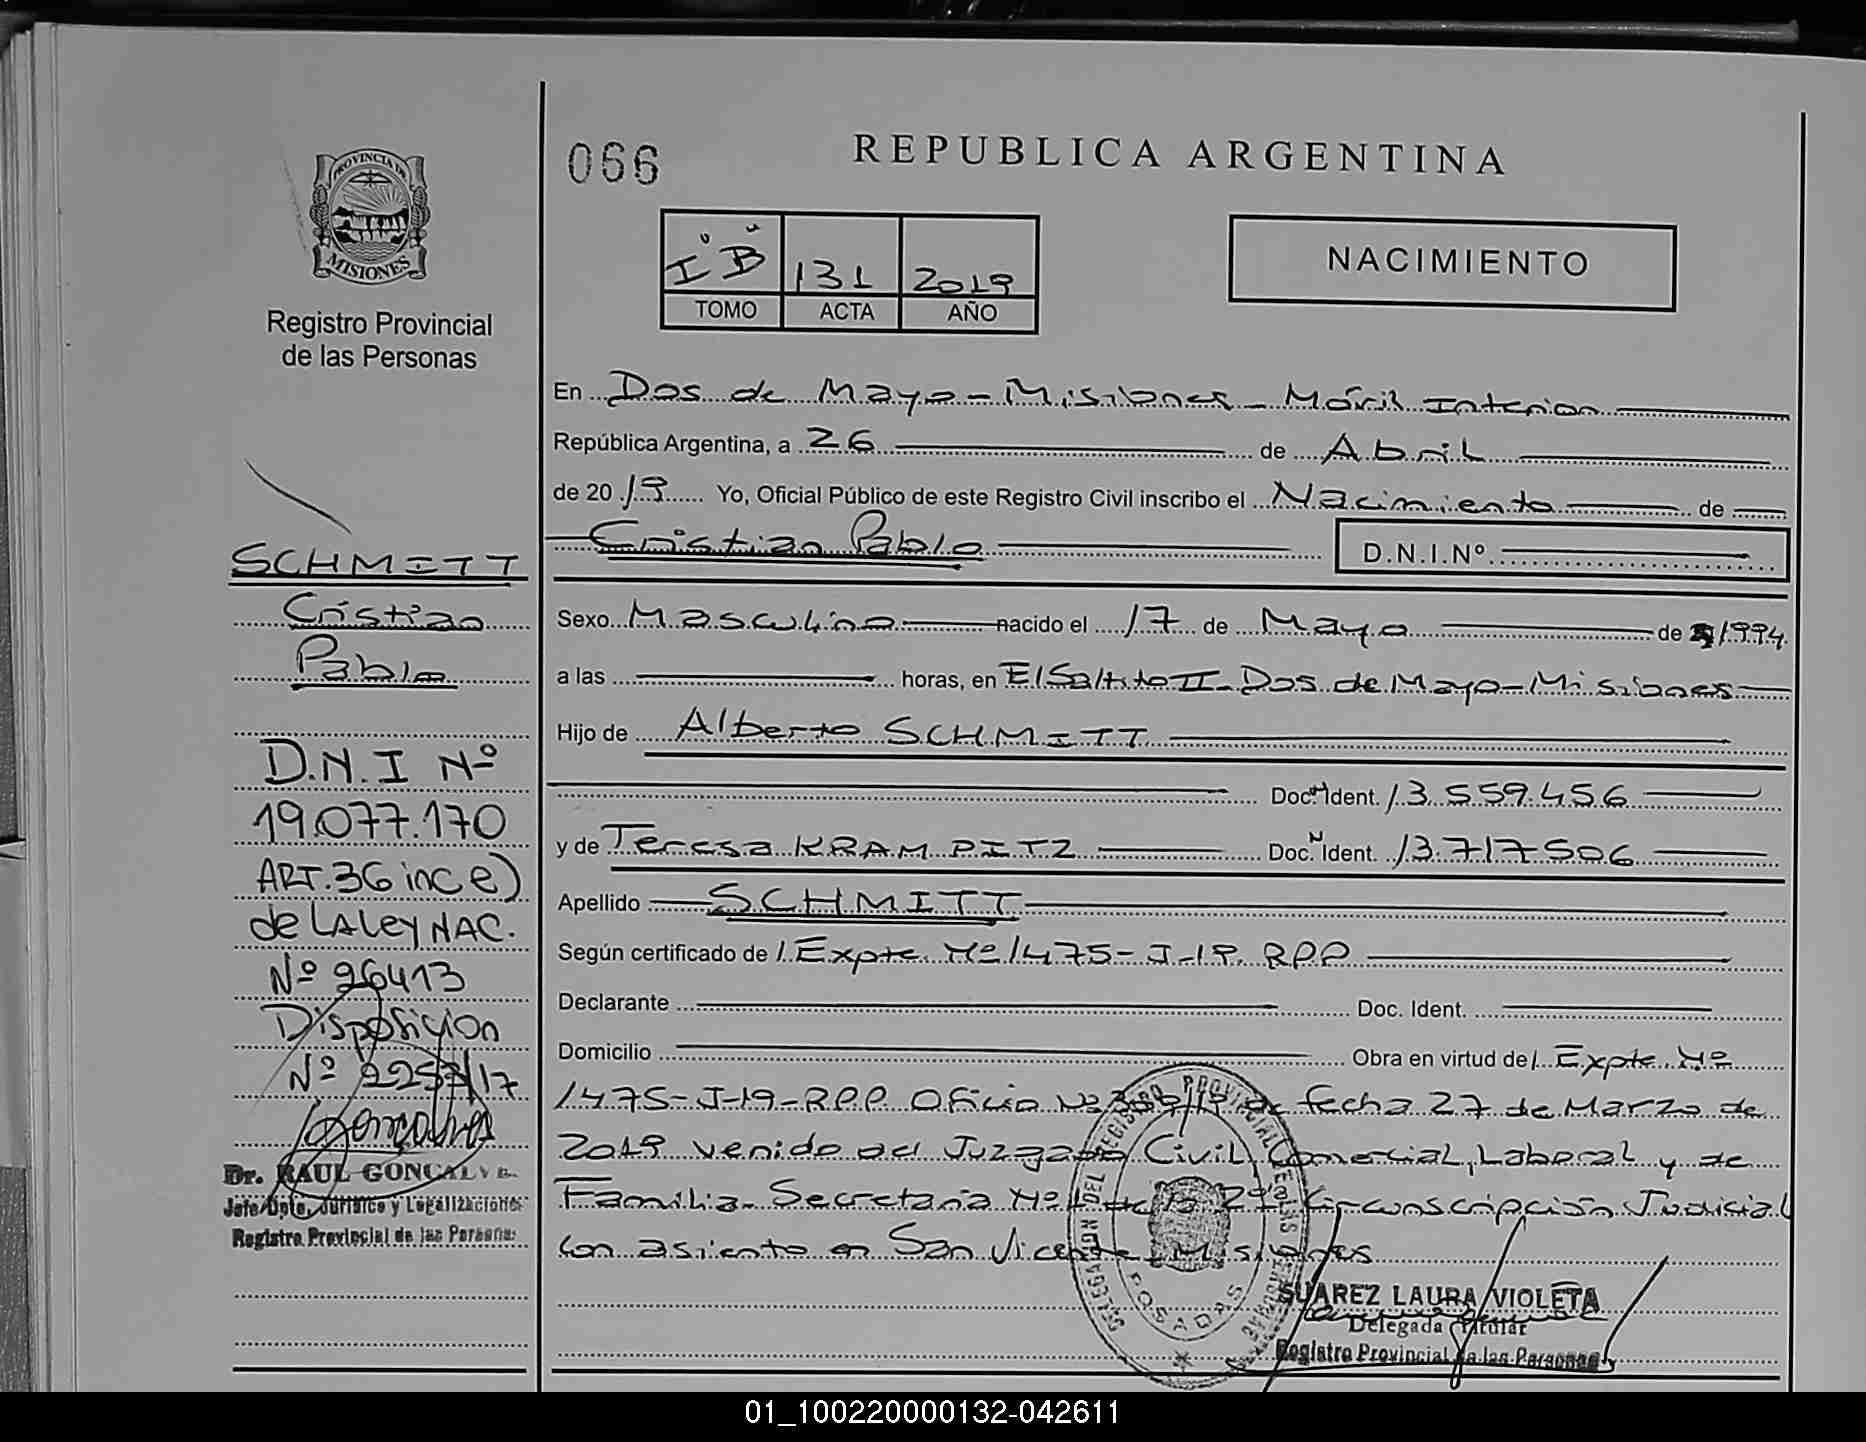 PROVINCIA DE
MISIONES
Registro Provincial
de las Personas
SCHMITT
Cristian
Pablo
D.N.I Nº
19.077.170
ART.36 inc e)
de LA Ley NAC.
Nº 26413
Disposicion
Nº 2257/17
Dr. RAUL GONCALVES
Jefe Dpto. Jurídico y Legalizaciones
Registro Provincial de las Personas
066
REPUBLICA ARGENTINA
I° "B" 131 2019
TOMO ACTA AÑO
NACIMIENTO
En Dos de Mayo - Misiones - Móvil Interior
República Argentina, a 26 de Abril
de 2019 Yo, Oficial Público de este Registro Civil inscribo el Nacimiento de
Cristian Pablo D.N.I.Nº
Sexo Masculino nacido el 17 de Mayo de 1994.
a las horas, en El Saltito II - Dos de Mayo - Misiones
Hijo de Alberto SCHMITT
Doc. Ident. 13.559.456
y de Teresa KRAMPITZ Doc. Ident. 13.717.506
Apellido SCHMITT
Según certificado de Expte. Nº 1475-J-19. RPP
Declarante Doc. Ident.
Domicilio Obra en virtud de Expte. Nº
1475-J-19-RPP Oficio Nº de fecha 27 de Marzo de
2019 venido del Juzgado Civil, Comercial, Laboral y de
Familia - Secretaria Nº 1 de la 2da Circunscripción Judicial
con asiento en San Vicente - Misiones
DELEGACION DEL REGISTRO PROVINCIAL DE LAS PERSONAS
POSADAS
SUAREZ LAURA VIOLETA
Delegada Titular
Registro Provincial de las Personas
01_100220000132-042611